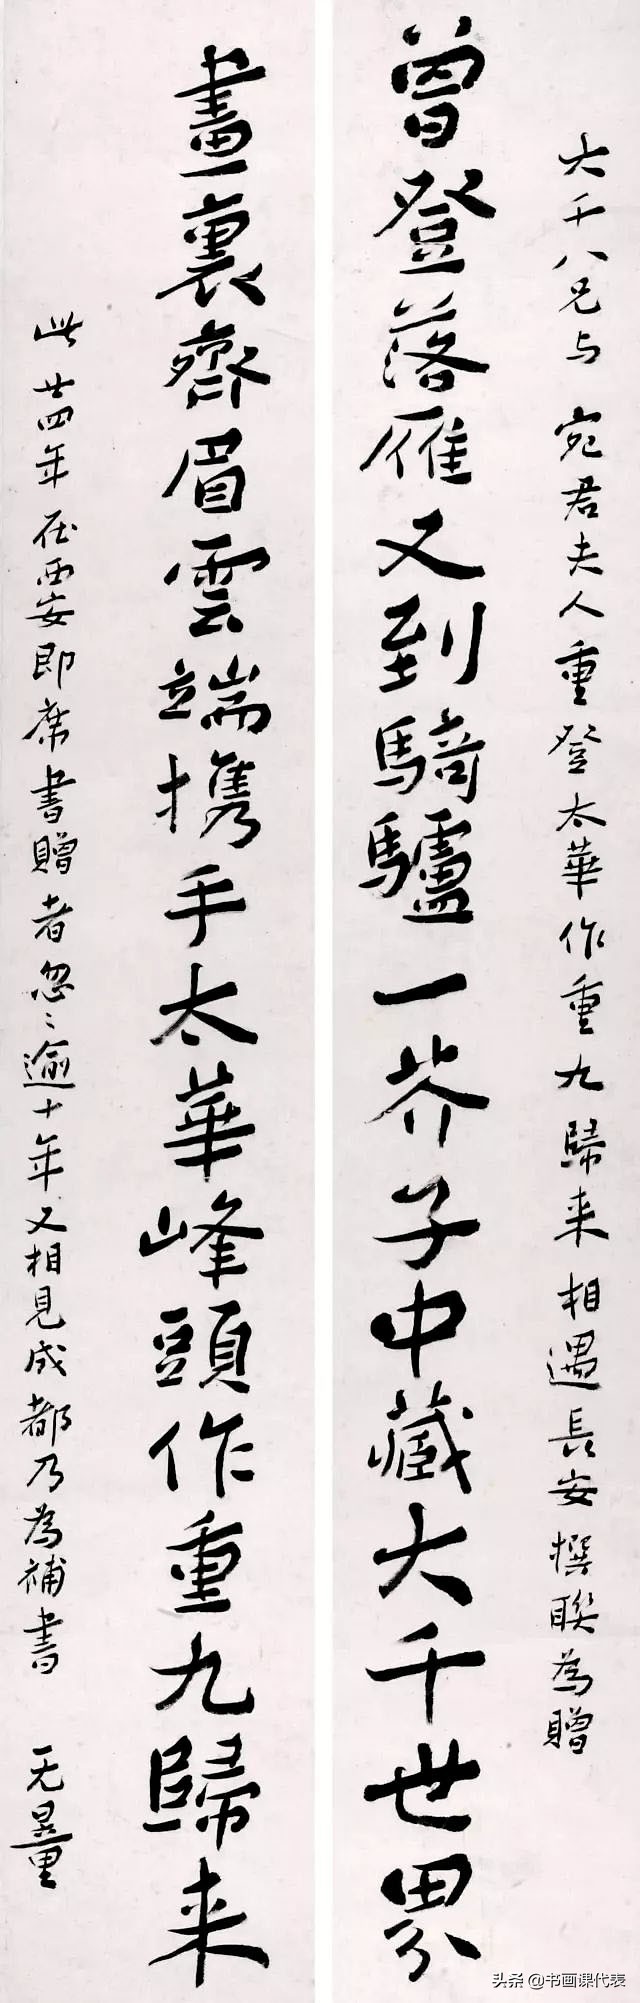 大千八兄与宛君夫人重登太華作重九歸来相遇長安撰聯為贈
曾登落雁又到騎驢一芥子中藏大千世界
畫裏齊眉雲端携手太華峰頭作重九歸来
此廿四年在西安即席書贈者忽〻逾十年又相見成都乃為補書
无量
头条 @书画课代表